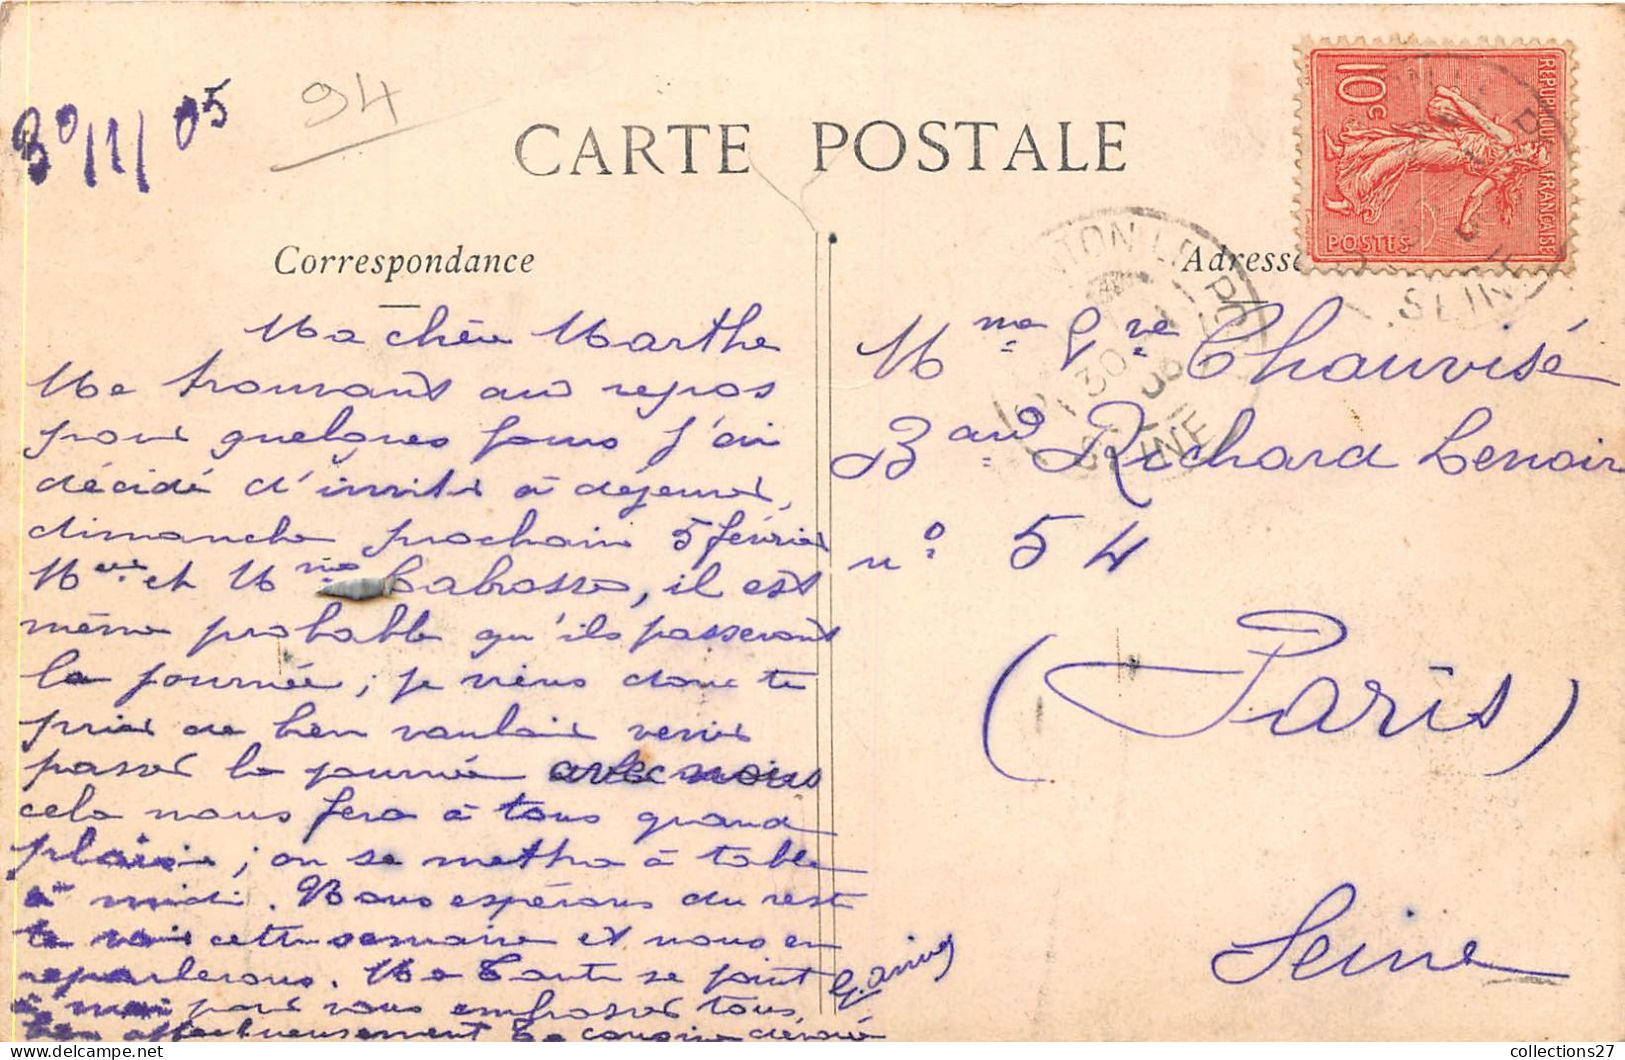 30/1/05
94
CARTE POSTALE
Correspondance
Adresse
REPUBLIQUE FRANÇAISE
10c
POSTES
SEINE
Ma chère Marthe
Me trouvant au repos
pour quelques jours j'ai
décidé d'inviter à déjeuner,
dimanche prochain 5 février
Mr et Mme Cabrosse, il est
même probable qu'ils passeront
la journée ; je viens donc te
prier de bien vouloir venir
passer la journée avec nous
cela nous fera à tous grand
plaisir ; on se mettra à table
à midi. Nous espérons du reste
te voir cette semaine et nous en
reparlerons. Ma Tante se joint
à moi pour vous embrasser tous,
bien affectueusement Ta cousine dévouée
Mme Vve Chauvisé
Bard Richard Lenoir
n° 54
(Paris)
Seine
collections27